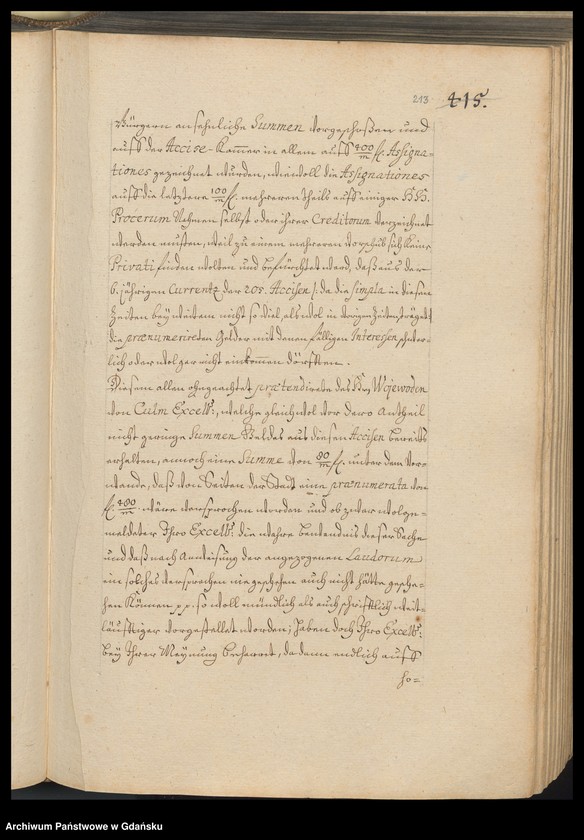 213 415.
Bürgern ansehnliche Summen vorgeschoßen und
auff der Accise-Kammer in allem auff 400/m fl. Assigna-
tiones gezeichnet wurden, wiewoll die Assignationes
auff die letztere 100/m fl. mehreren theils auff einiger HH.
Procerum Nahmen selbst oder ihrer Creditorum verzeichnet
werden musten, weil zu einem mehreren vorschub sich keine
Privati finden wolten und befürchtet ward, daß aus der
6. jährigen Currentz der 205. Accisen /: da die simpla in diesen
Zeiten bey weitem nicht so viel, als wol in vorigen Zeiten, träget :/
die praenumerireten Gelder mit denen fälligen Interessen, schwer-
lich oder wol gar nicht einkommen dörfften.
Diesem allen ohngeachtet praetendirete des Hn. Wojewoden
von Culm Excell:, welche gleichwol vor dero Antheil
nicht geringe Summen Geldes aus diesen Accisen bereits
erhalten, annoch eine Summe von 80/m fl. unter dem Vor-
wande, daß von Seiten der Stadt eine praenumerata von
fl. 480/m wäre versprochen worden und ob zwar wolge-
meldeter Ihro Excell: die wahre bewandnis dieser Sache
und daß nach Anweisung der angezogenen Laudorum
ein solches versprechen nie geschehen auch nicht hätte gesche-
hen können pp. so woll mündlich als auch schrifftlich weit-
läufftiger vorgestellet worden; haben doch Ihro Excell:
bey Ihrer Meynung beharret, da dann endlich auff
so=
Archiwum Państwowe w Gdańsku